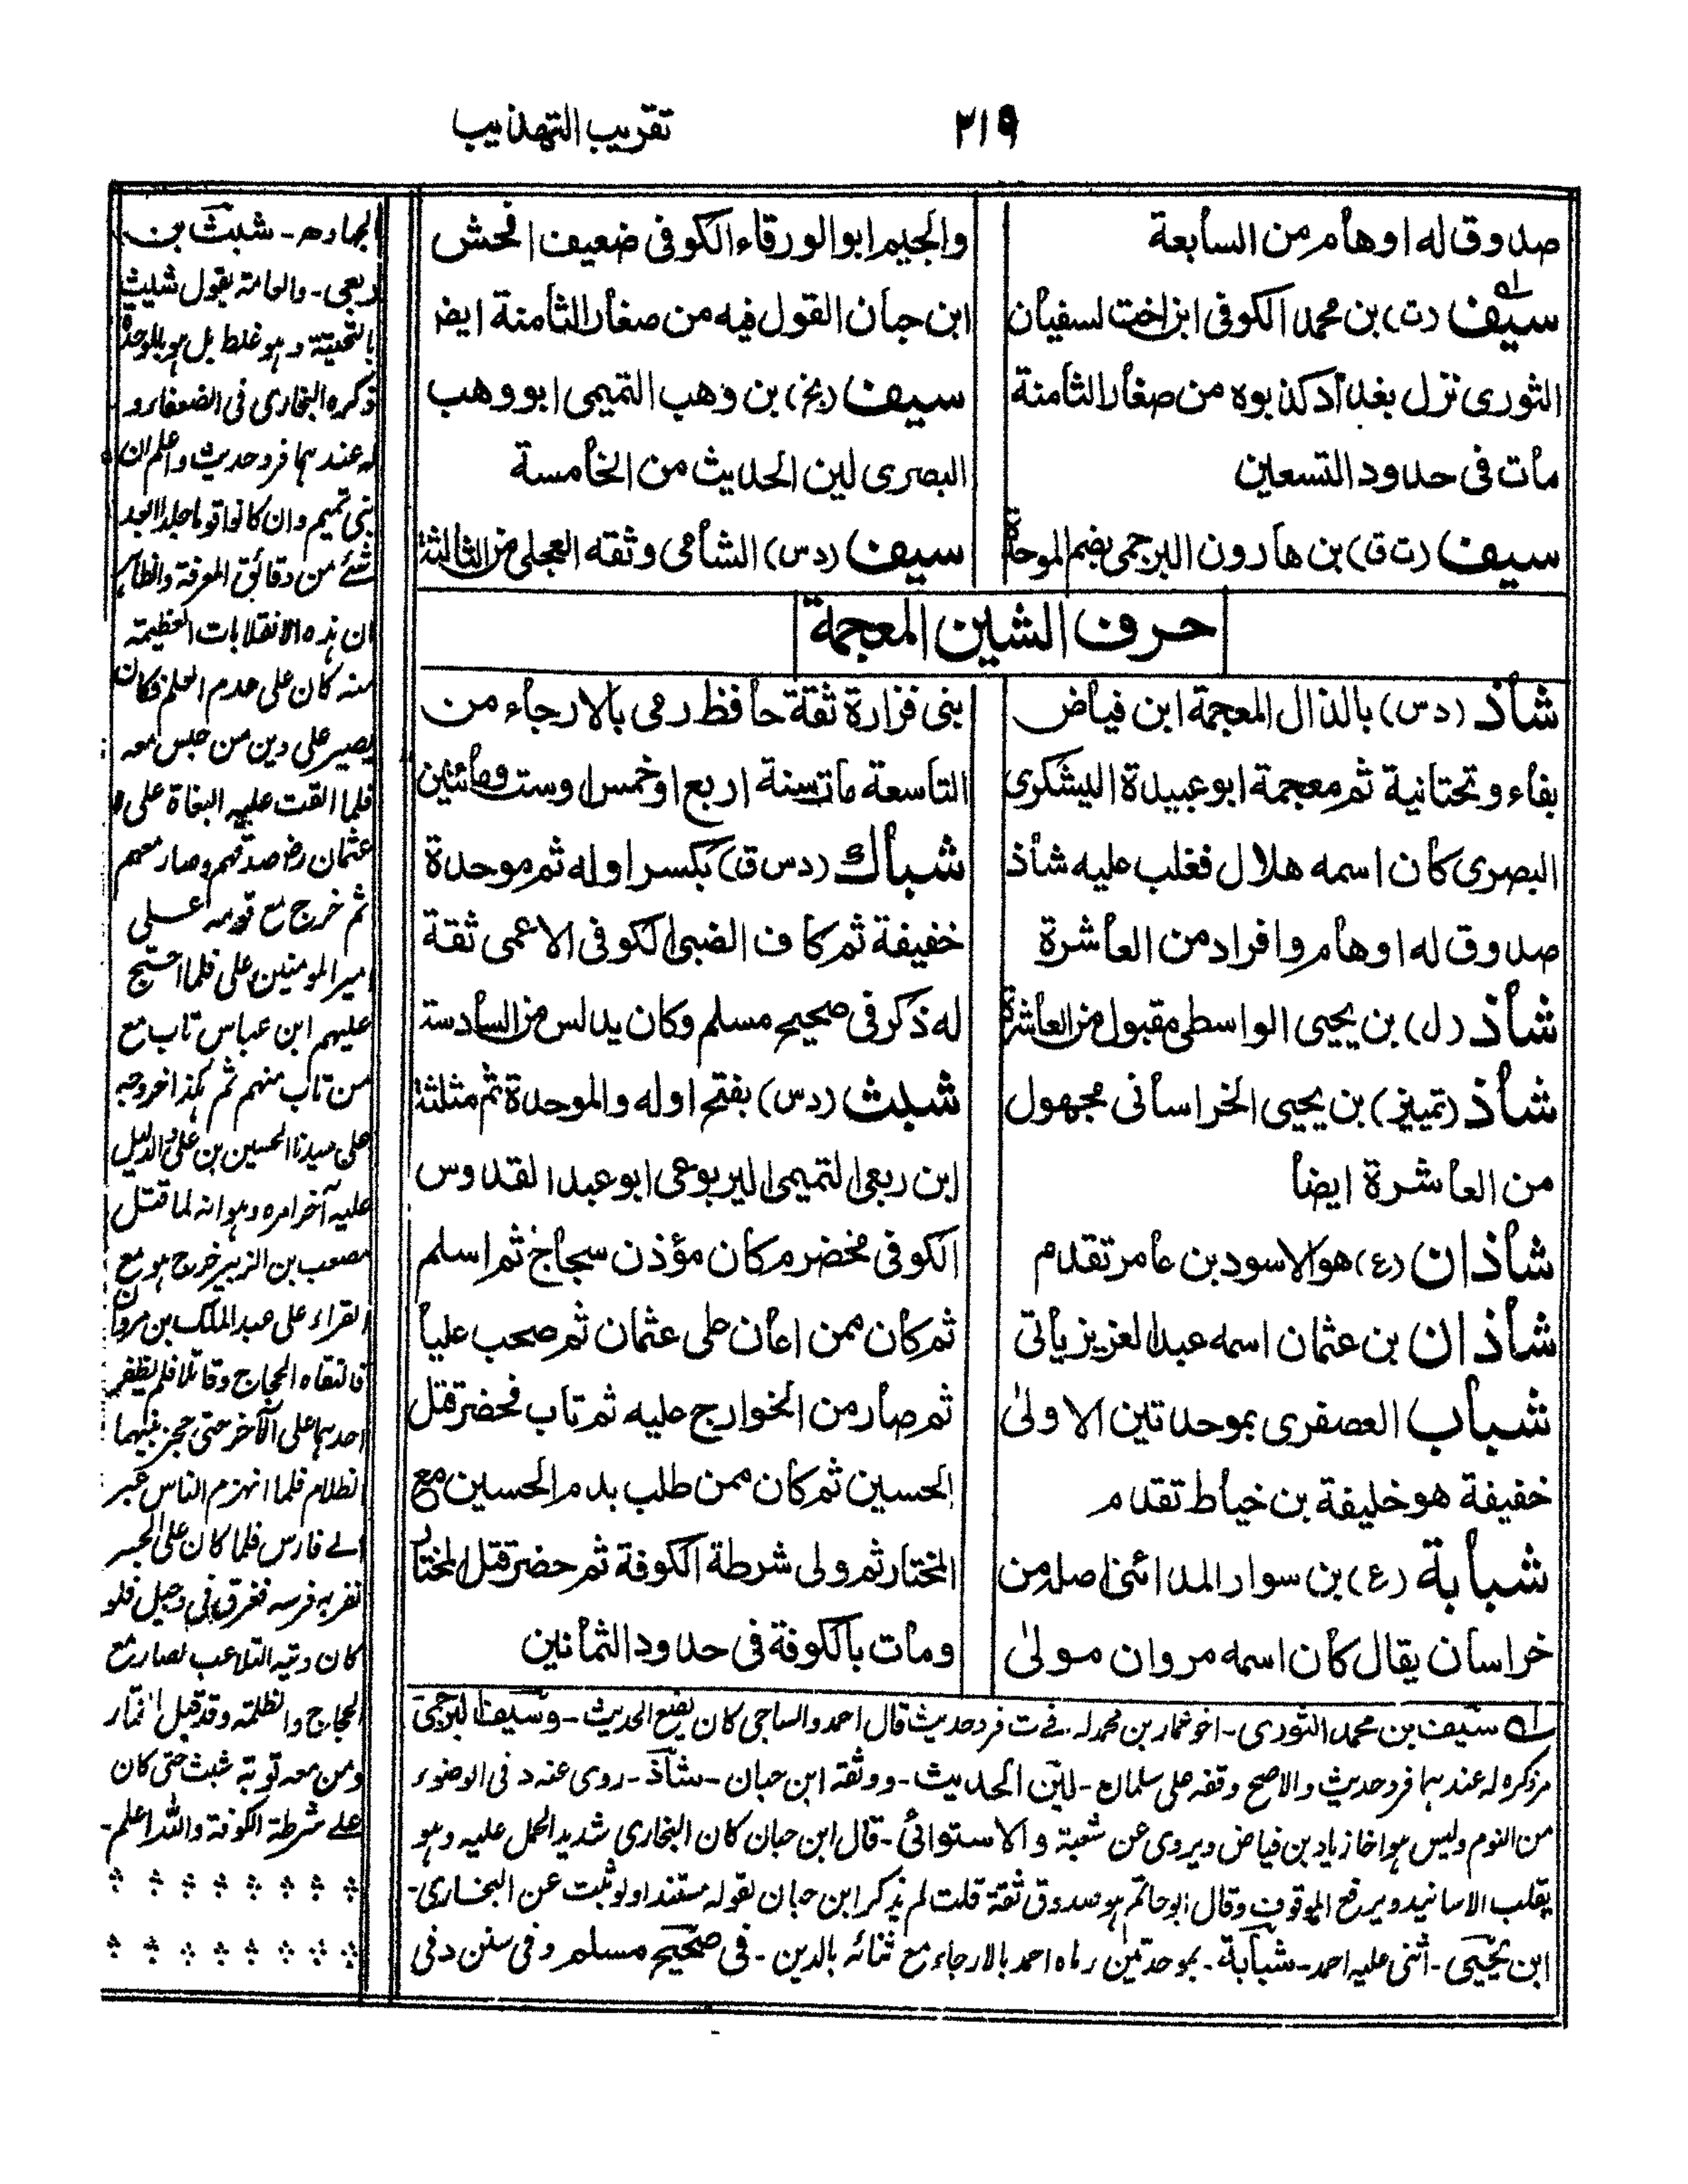 تقريب التهذيب
٢١٩
صدوق له اوهام من السابعة
سيف (ت) بن محمد الكوفى ابن اخت لسفيان
الثورى نزل بغداد كذبوه من صغار الثامنة
مات فى حدود التسعين
سيف (ت ق) بن هارون البرجمى بضم الموحدة
والجيم ابو الورقاء الكوفى ضعيف افحش
ابن حبان القول فيه من صغار الثامنة ايضا
سيف (بخ) بن وهب التميمى ابو وهب
البصرى لين الحديث من الخامسة
سيف (دس) الشامى وثقه العجلى من الثالثة
حرف الشين المعجمة
شاذ (دس) بالذال المعجمة ابن فياض
بفاء وتحتانية ثم معجمة ابو عبيدة اليشكرى
البصرى كان اسمه هلال فغلب عليه شاذ
صدوق له اوهام وافراد من العاشرة
شاذ (ل) بن يحيى الواسطى مقبول من العاشرة
شاذ (تمييز) بن يحيى الخراسانى مجهول
من العاشرة ايضاً
شاذان (ع) هو الاسود بن عامر تقدم
شاذان بن عثمان اسمه عبد العزيز يأتى
شباب العصفرى بموحدتين الاولىٰ
خفيفة هو خليفة بن خياط تقدم
شبابة (ع) بن سوار المدائنى اصله من
خراسان يقال كان اسمه مروان مولىٰ
بنى فزارة ثقة حافظ رمى بالارجاء من
التاسعة مات سنة اربع او خمس او ست ومائتين
شباك (دس ق) بكسر اوله ثم موحدة
خفيفة ثم كاف الضبى الكوفى الاعمى ثقة
له ذكر فى صحيح مسلم وكان يدلس من السادسة
شبث (دس) بفتح اوله والموحدة ثم مثلثة
ابن ربعى التميمى اليربوعى ابو عبد القدوس
الكوفى مخضرم كان مؤذن سجاح ثم اسلم
ثم كان ممن اعان على عثمان ثم صحب علياً
ثم صار من الخوارج عليه ثم تاب فحضر قتل
الحسين ثم كان ممن طلب بدم الحسين مع
المختار ثم ولى شرطة الكوفة ثم حضر قتل المختار
ومات بالكوفة فى حدود الثمانين
له سيف بن محمد الثورى - اخو عمار بن محمد له فى ت فرد حديث قال احمد والساجى كان يضع الحديث - وسيف البرجمى
ذكره له عندهما فرد حديث والاصح وقفه على سلمان - لين الحديث - ووثقه ابن حبان - شاذ - روى عنه د فى الوضوء
من النوم وليس هو اخا زياد بن فياض ويروى عن شعبة والاستوائى - قال ابن حبان كان البخارى شديد الحمل عليه وهو
يقلب الاسانيد ويرفع الموقوف وقال ابو حاتم هو صدوق ثقة قلت لم يذكر ابن حبان لقوله مستندا ولو ثبت عن البخارى -
ابن يحيى - اثنى عليه احمد - شبابة - بموحدتين رماه احمد بالارجاء مع ثنائه بالدين - فى صحيح مسلم وفى سنن د فى
الجهاد - شبث بن
ربعى - والعامة يقول شليث
بالتحتية وهو غلط بل هو بالموحدة
ذكره البخارى فى الضعفاء و
له عندهما فرد حديث واعلم ان
بنى تميم وان كانوا قوما
شئ من دقائق المعرفة والظاهر
ان هذه الانقلابات العظيمة
منه كان على عدم العلم فكان
يصير على دين من جلس معه
فلما القت عليه البغاة على
عثمان رض صدقهم وصار معهم
ثم خرج مع قومه على
امير المومنين على فلما احتج
عليهم ابن عباس تاب مع
من تاب منهم ثم هكذا خروجه
على سيدنا الحسين بن على والدليل
عليه آخر امره وهو انه لما قتل
مصعب بن الزبير خرج هو مع
القراء على عبد الملك بن مروان
فالتقاه الحجاج وقاتلا فلم يظفر
احدهما على الآخر حتى حجز بينهما
الظلام فلما انهزم الناس عبر
الى فارس فلما كان على الجسر
نفر به فرسه فغرق فى دجيل فلو
كان دينه التلاعب لصار مع
الحجاج والظلمة وقد قبل
ومن معه توبة شبث حتى كان
على شرطة الكوفة والله اعلم -